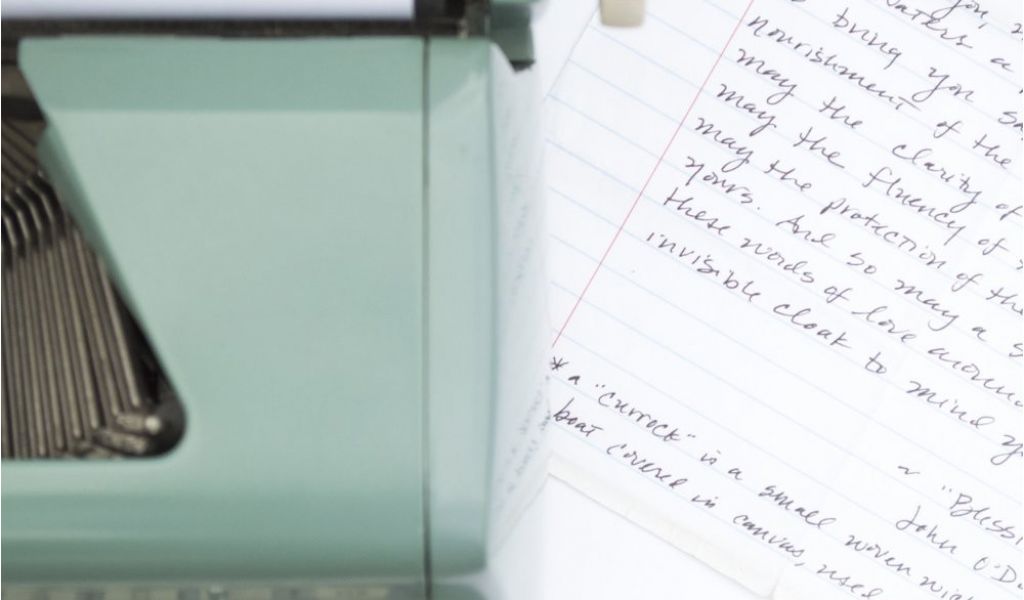 you,
waters a
bring you
nourishment of the
may the clarity of
may the fluency of
may the protection of the
yours. And so may a s
these words of love aroun
invisible cloak to mind y
~ "Blessi
John O'D
* a "currock" is a small woven
boat covered in canvas, used